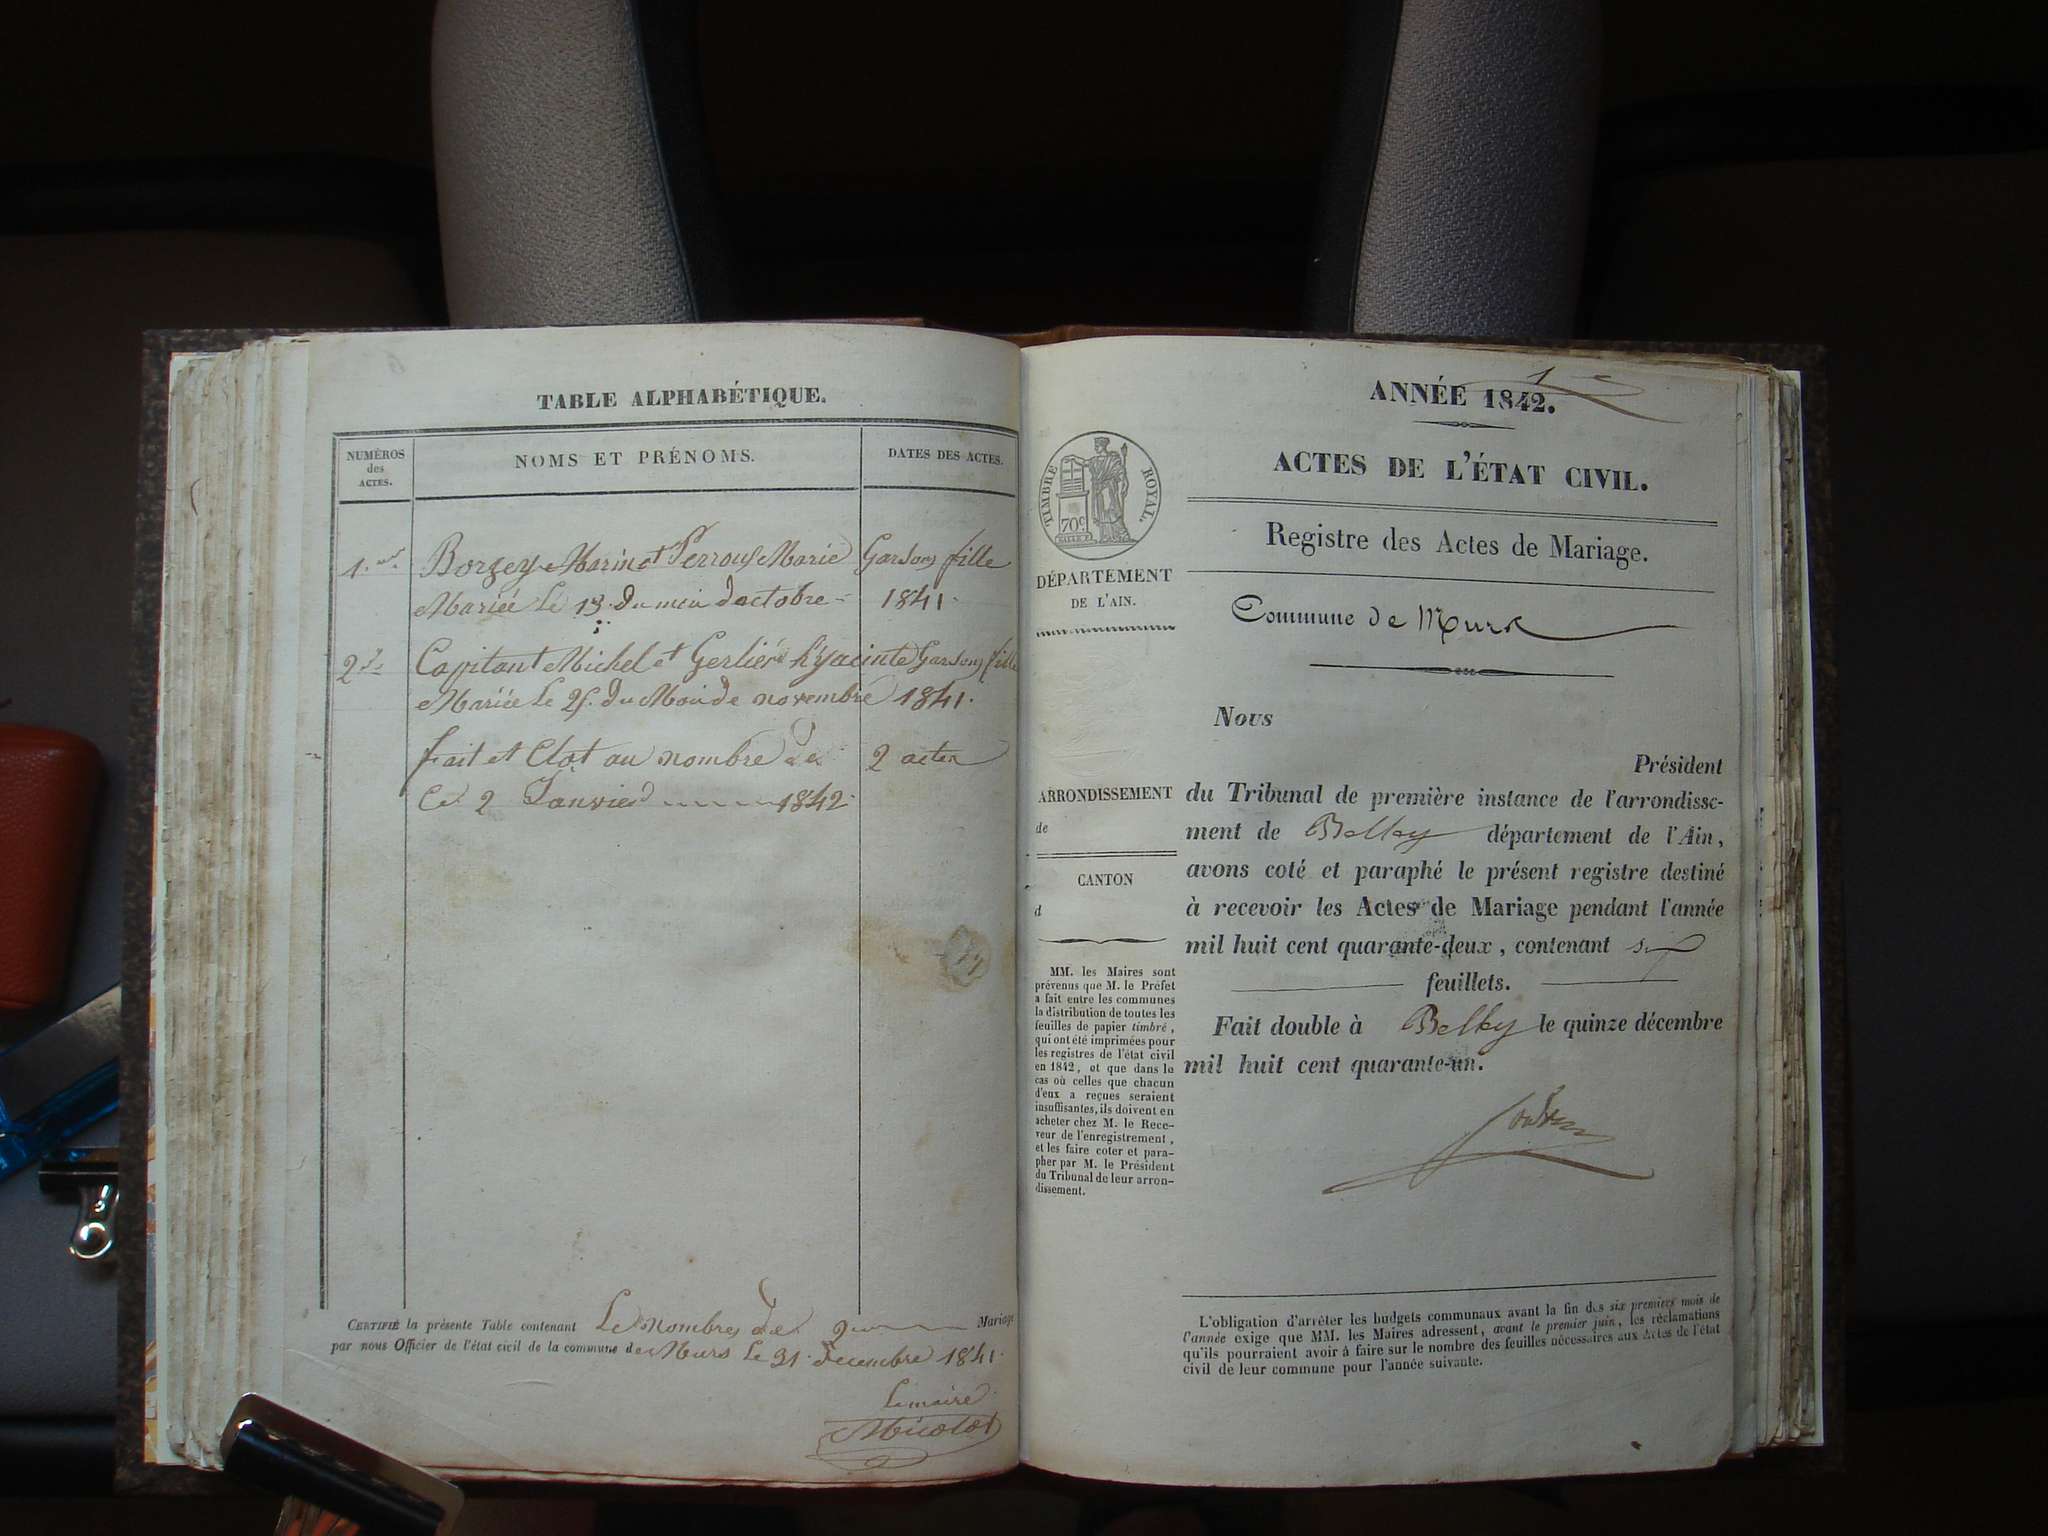 TABLE ALPHABÉTIQUE.
NUMÉROS
des
ACTES.
NOMS ET PRÉNOMS.
DATES DES ACTES.
1.
Borzey Marin et Perrous Marie Garsons fille
Mariée Le 13 du mois doctobre 1841.
2
Capitant Michel et Gerliere hyacinte Garsons fille
Mariée Le 25. du Mois de novembre 1841.
fait et Clot au nombre de 2 actes
Ce 2 Janvier 1842.
CERTIFIÉ la présente Table contenant Le Nombres de 2 Mariage
par nous Officier de l'état civil de la commune de Murs Le 31 decembre 1841.
Le maire
Micolot
1
ANNÉE 1842.
ACTES DE L'ÉTAT CIVIL.
Registre des Actes de Mariage.
Commune de Murs
TIMBRE ROYAL.
70c.
DÉPARTEMENT
DE L'AIN.
ARRONDISSEMENT
de
CANTON
d
MM. les Maires sont
prévenus que M. le Préfet
a fait entre les communes
la distribution de toutes les
feuilles de papier timbré,
qui ont été imprimées pour
les registres de l'état civil
en 1842, et que dans le
cas où celles que chacun
d'eux a reçues seraient
insuffisantes, ils doivent en
acheter chez M. le Rece-
veur de l'enregistrement,
et les faire coter et para-
pher par M. le Président
du Tribunal de leur arron-
dissement.
Nous
Président
du Tribunal de première instance de l'arrondisse-
ment de Belley département de l'Ain,
avons coté et paraphé le présent registre destiné
à recevoir les Actes de Mariage pendant l'année
mil huit cent quarante-deux, contenant
feuillets.
Fait double à Belley le quinze décembre
mil huit cent quarante-un.
L'obligation d'arrêter les budgets communaux avant la fin des six premiers mois de
l'année exige que MM. les Maires adressent, avant le premier juin, les réclamations
qu'ils pourraient avoir à faire sur le nombre des feuilles nécessaires aux Actes de l'état
civil de leur commune pour l'année suivante.